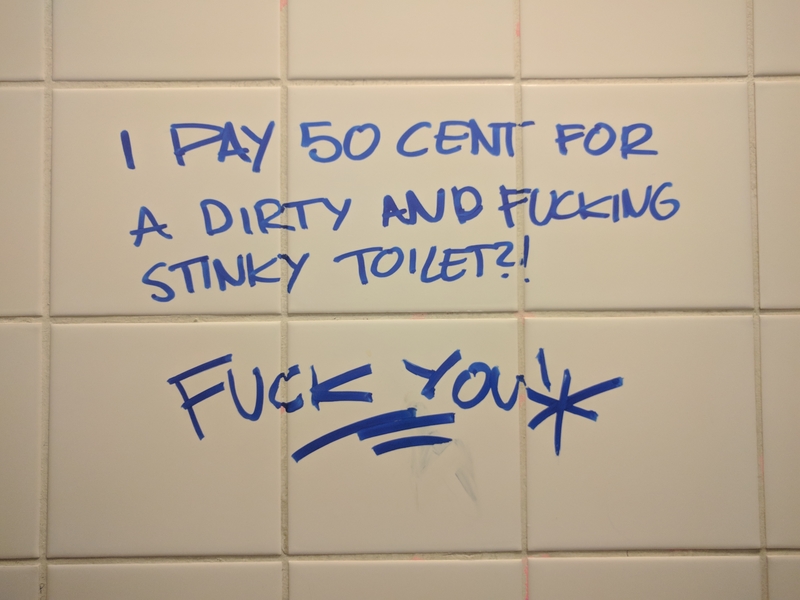 I PAY 50 CENT FOR
A DIRTY AND FUCKING
STINKY TOILET?!
FUCK YOU!*